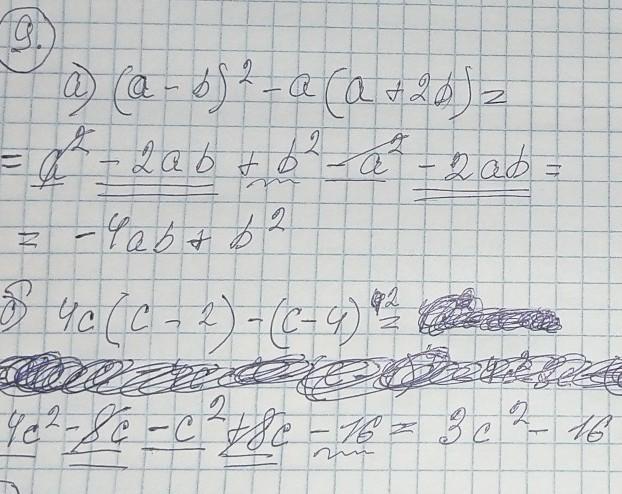 9.
а) (a - b)² - a(a + 2b) =
= a² - 2ab + b² - a² - 2ab =
= -4ab + b²
б) 4c(c - 2) - (c - 4)² =
4c² - 8c - c² + 8c - 16 = 3c² - 16